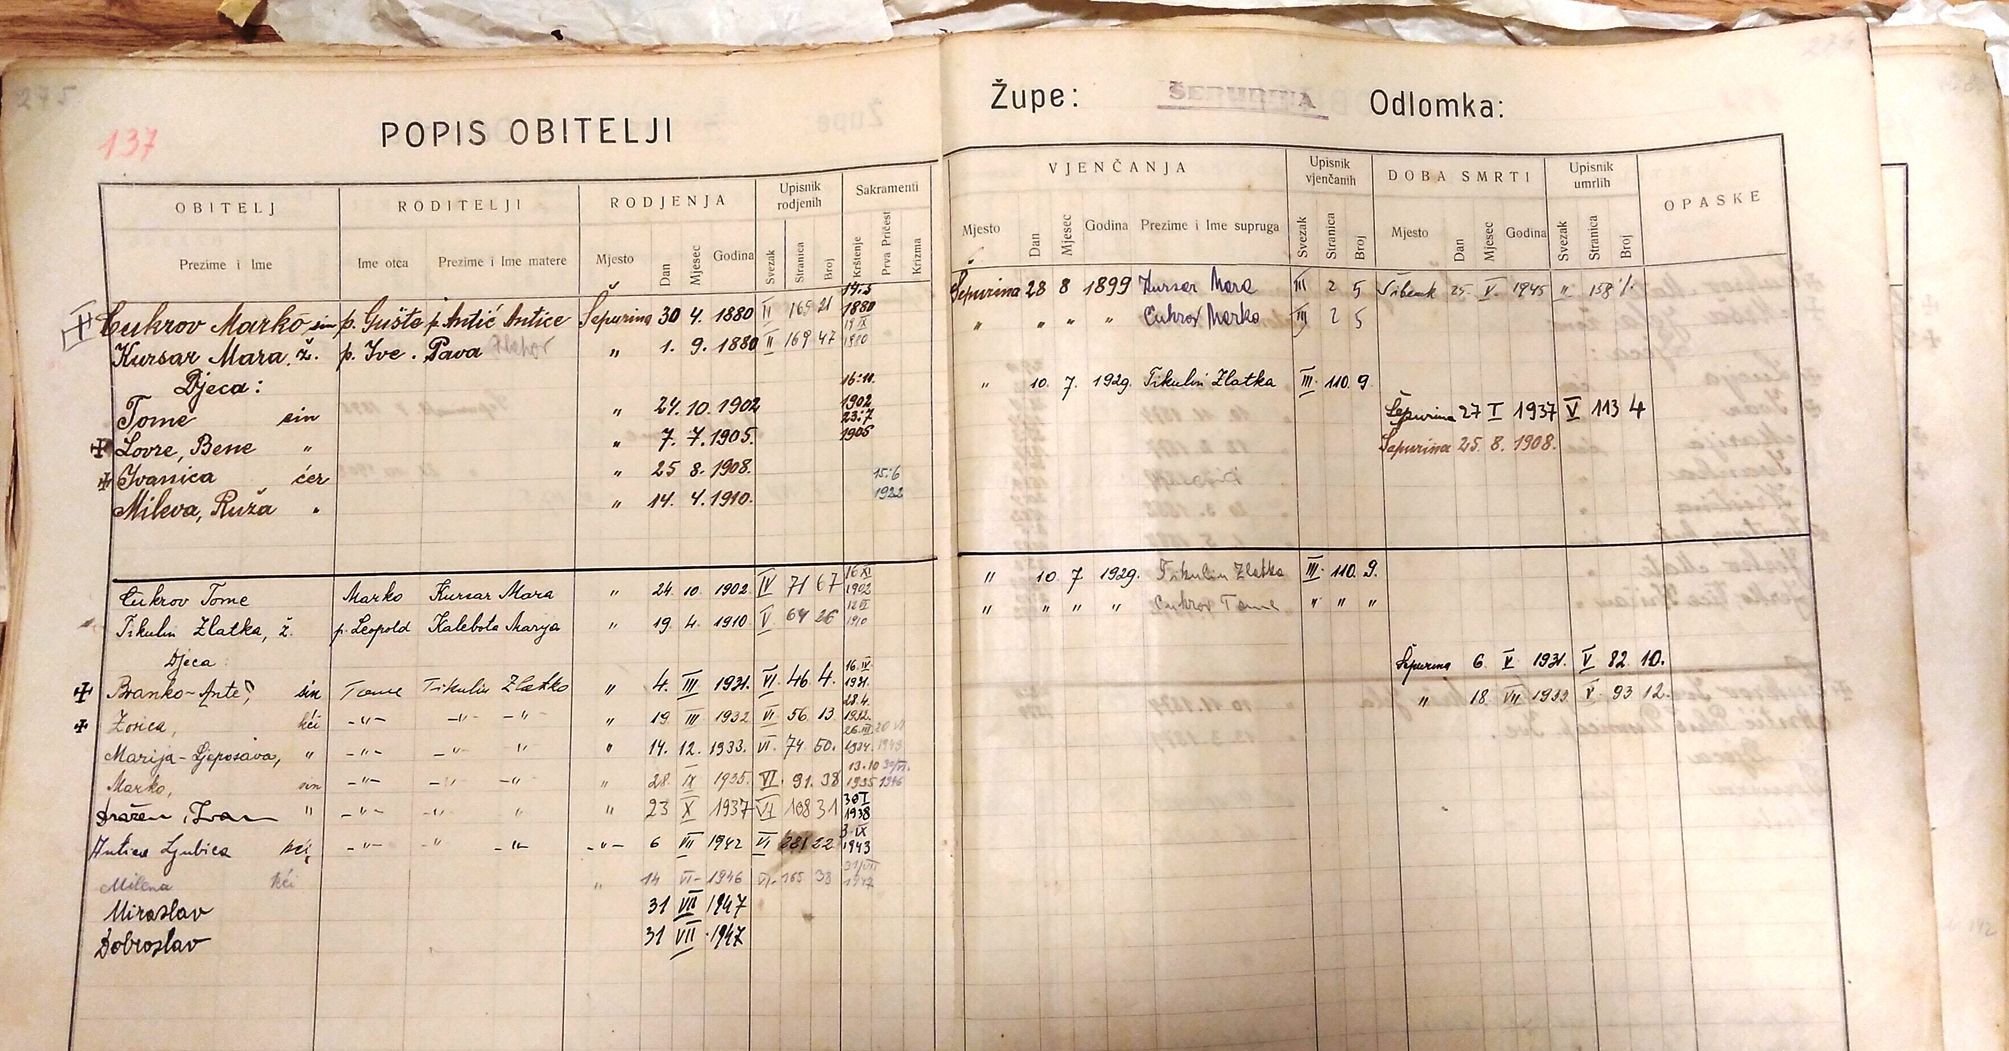 275
137
POPIS OBITELJI
Župe: ŠEPURINA Odlomka:
OBITELJ RODITELJI RODJENJA Upisnik rodjenih Sakramenti VJENČANJA Upisnik vjenčanih DOBA SMRTI Upisnik umrlih OPASKE
Prezime i Ime Ime otca Prezime i Ime matere Mjesto Dan Mjesec Godina Svezak Stranica Broj Krštenje Prva Pričest Krizma Mjesto Dan Mjesec Godina Prezime i Ime supruga Svezak Stranica Broj Mjesto Dan Mjesec Godina Svezak Stranica Broj
Cukrov Marko sin p. Gušte p. Antić Antice Šepurina 30 4. 1880 II 169 21 1880 Šepurina 28 8 1899 Kursar Mara III 2 5 Šibenik 25. V. 1945 II. 158
Kursar Mara ž. p. Ive. Pava " 1. 9. 1880 II 169 47 19 IX 1880 " " " " Cukrov Marko III 2 5
Djeca:
Tome sin " 24. 10. 1902 16.11. 1902 " 10. 7. 1929. Tikulin Zlatka III. 110. 9.
✠ Lovre, Bene " " 7. 7. 1905. 23.7 1905 Šepurina 27 I 1937 V 113 4
✠ Ivanica ćer " 25 8. 1908. Šepurina 25. 8. 1908.
Mileva, Ruža " " 14. 4. 1910. 15.6 1922
Cukrov Tome Marko Kursar Mara " 24. 10. 1902 IV 71 67 16 XI 1902 " 10. 7 1929. Tikulin Zlatka III. 110. 9.
Tikulin Zlatka, ž. p. Leopold Kalebota Marija " 19 4. 1910 V 64 26 1910 " " " " Cukrov Tome " " "
Djeca:
✠ Branko-Ante, sin Tome Tikulin Zlatka " 4. III 1931. VI. 46 4. 16. IV. 1931. Šepurina 6. V 1931. V. 82. 10.
✠ Zorica, kći -"- -"- -"- " 19 III 1932 VI 56. 13. 28.4. 1932. " 18. VII 1933. V. 93 12.
Marija-Ljeposava, " -"- -"- " " 14. 12. 1933. VI. 74 50. 26.III. 1934. 1943
Marko, sin -"- -"- -"- " 28. IX 1935. VI. 91. 38 13.10 1935 1946
Dražen, Ivan " -"- -"- " " 23 X 1937 VI 108 31 30 I 1938
Antica Ljubica kći -"- -"- -"- -"- 6 VII 1942 VI 22 3. IX 1943
Milena kći " 14 VI- 1946 VI. 165 38 31/VII 1947
Miroslav 31 VII 1947
Dobroslav 31 VII. 1947